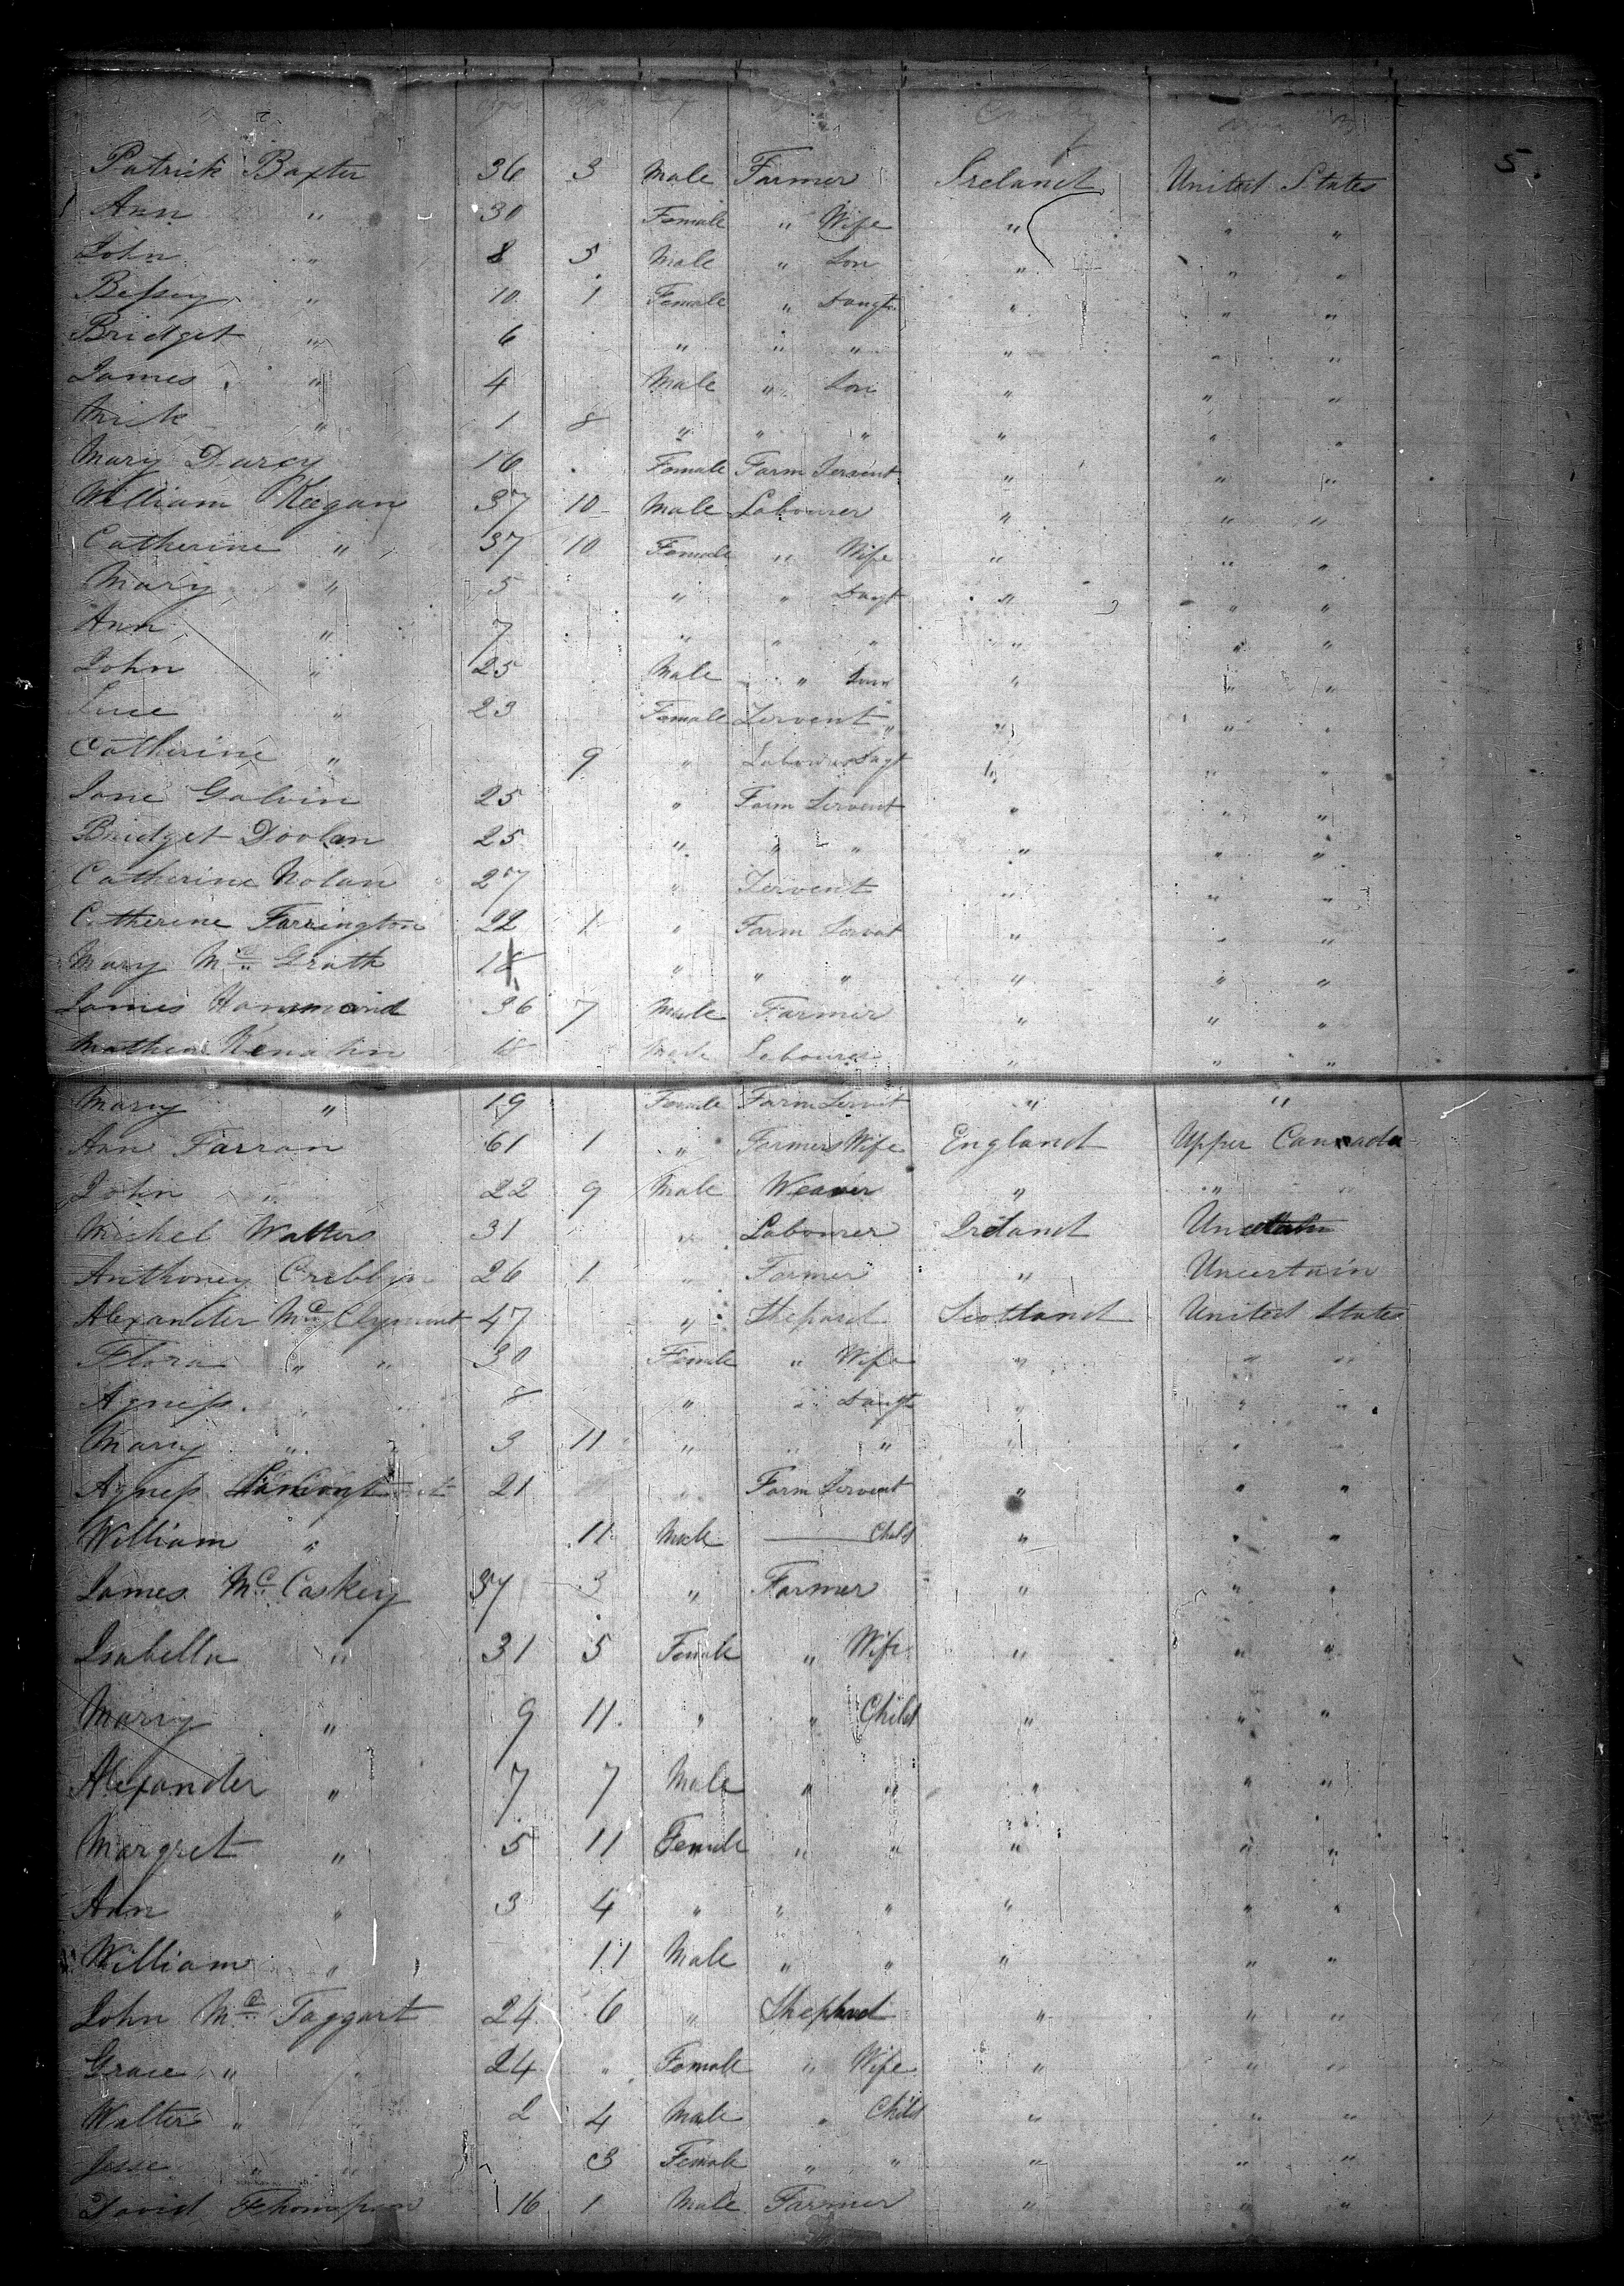 5.
Patrick Baxter 36 3 Male Farmer Ireland United States
Ann " 30 Female " Wife " " "
John " 8 5 Male " Son " " "
Bessey " 10 1 Female " Daugtr " " "
Bridget " 6 " " " " " "
James " 4 Male " Son " " "
Mick " 1 8 " " " " " "
Mary Darcy 16 Female Farm Servent " " "
William Keegan 37 10 Male Labourer " " "
Catherine " 37 10 Female " Wife " " "
Mary " 5 " " Daugt " " "
Ann " 7 " " " " " "
John " 25 Male " Son " " "
Luce " 23 Female Servent " " " "
Catherine " 9 " Labourer Dagt " " "
Jane Galvin 25 " Farm Servent " " "
Bridget Doolan 25 " " " " " "
Catherine Nolan 27 " Servent " " "
Catherine Farrington 22 1 " Farm Servnt " " "
Mary Mc Grath 18 " " " " " "
James Hammond 36 7 Male Farmer " " "
Mathew 18 Male Labourer " " "
Mary " 19 Female Farm Servnt " "
Ann Farran 61 1 " Farmers Wife England Upper Canada
John " 22 9 Male Weaver " "
Michel Walters 31 " Labourer Ireland Uncertain
Anthoney 26 1 " Farmer " Uncertain
Alexander Mc Clyment 47 " Shepard Scotland United States
Flora " " 30 Female " Wife " " "
Agness " 8 " " Daugt " " "
Mary " " 3 11 " " " " " "
Agness 21 " Farm Servent " " "
William " 11 Male — Child " " "
James Mc Caskey 37 3 " Farmer " " "
Isabella " 31 5 Female " Wife " " "
Marry " 9 11 " " Child " " "
Alexander " 7 7 Male " " " " "
Margret " 5 11 Female " " " " "
Ann " 3 4 " " " " " "
William " 11 Male " " " " "
John Mc Taggart 24 6 " Shephard " " "
Grace " 24 " Female " Wife " " "
Walter " 2 4 Male " Child " " "
Jesse " " 3 Female " " " " "
David Thompson 16 1 Male Farmer " " "